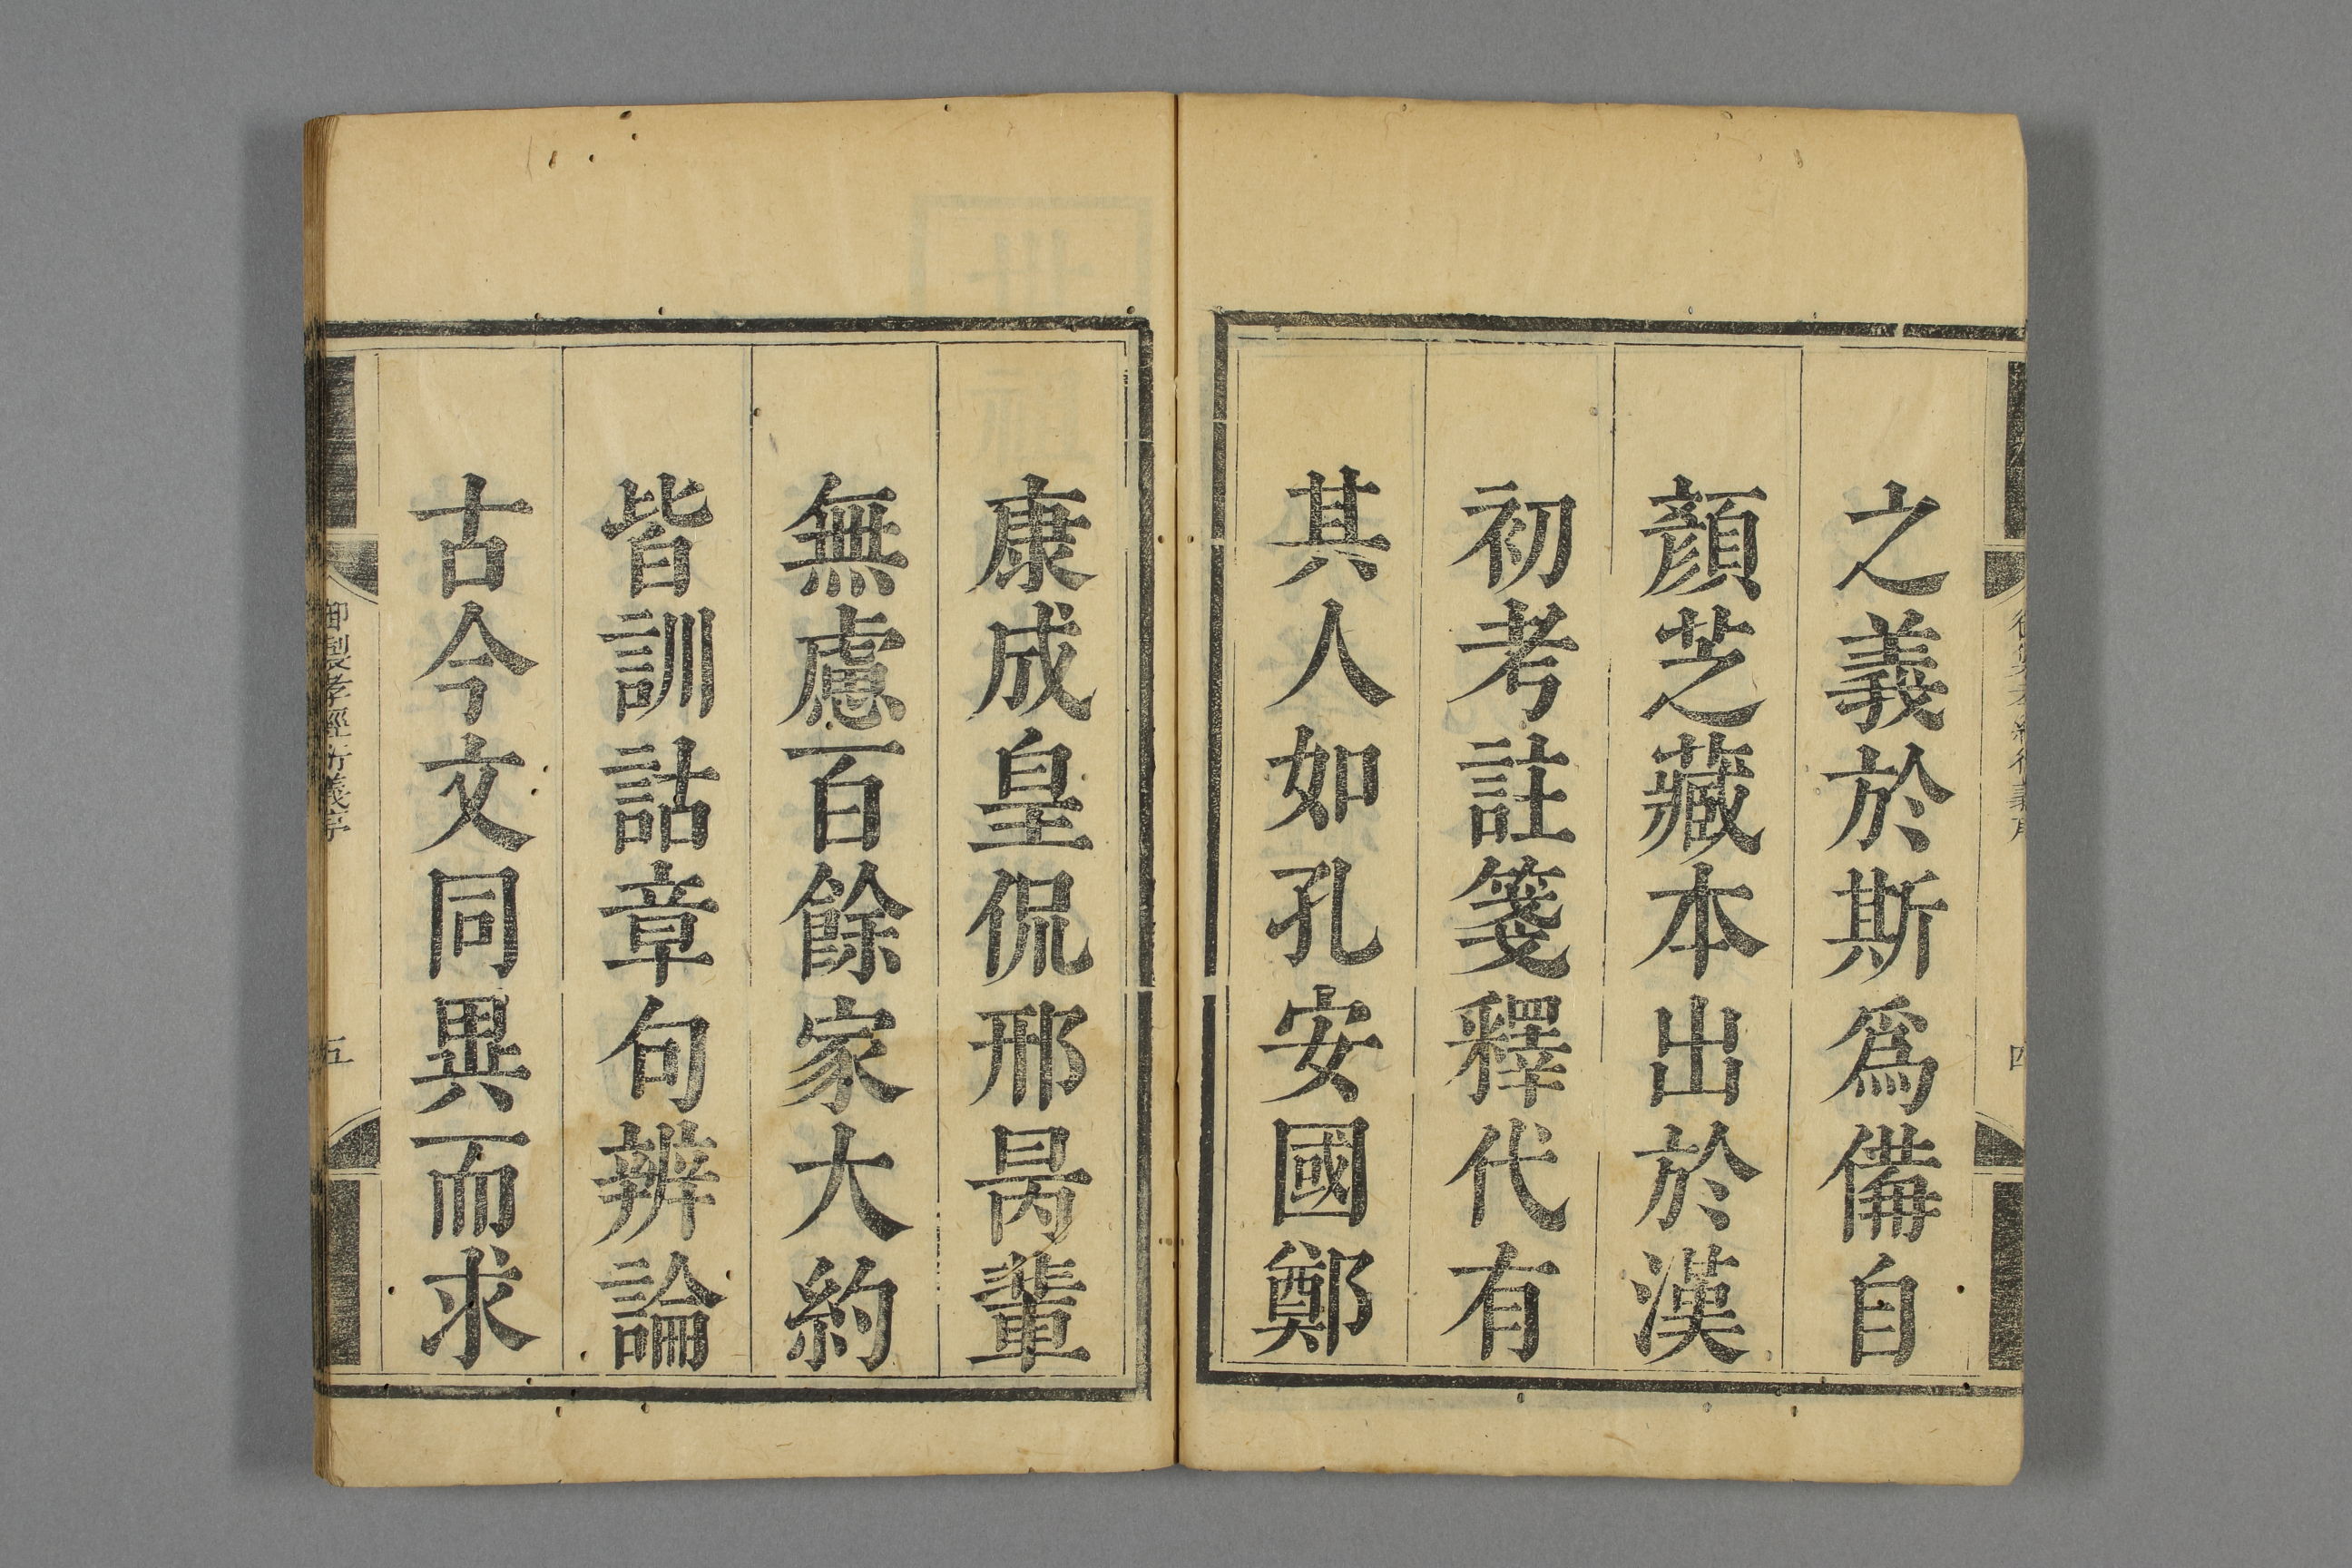 之義於斯爲備自
顏芝藏本出於漢
初考註箋釋代有
其人如孔安國鄭
康成皇侃邢昺輩
無慮百餘家大約
皆訓詁章句辨論
古今文同異而求
御製孝經衍義序
五